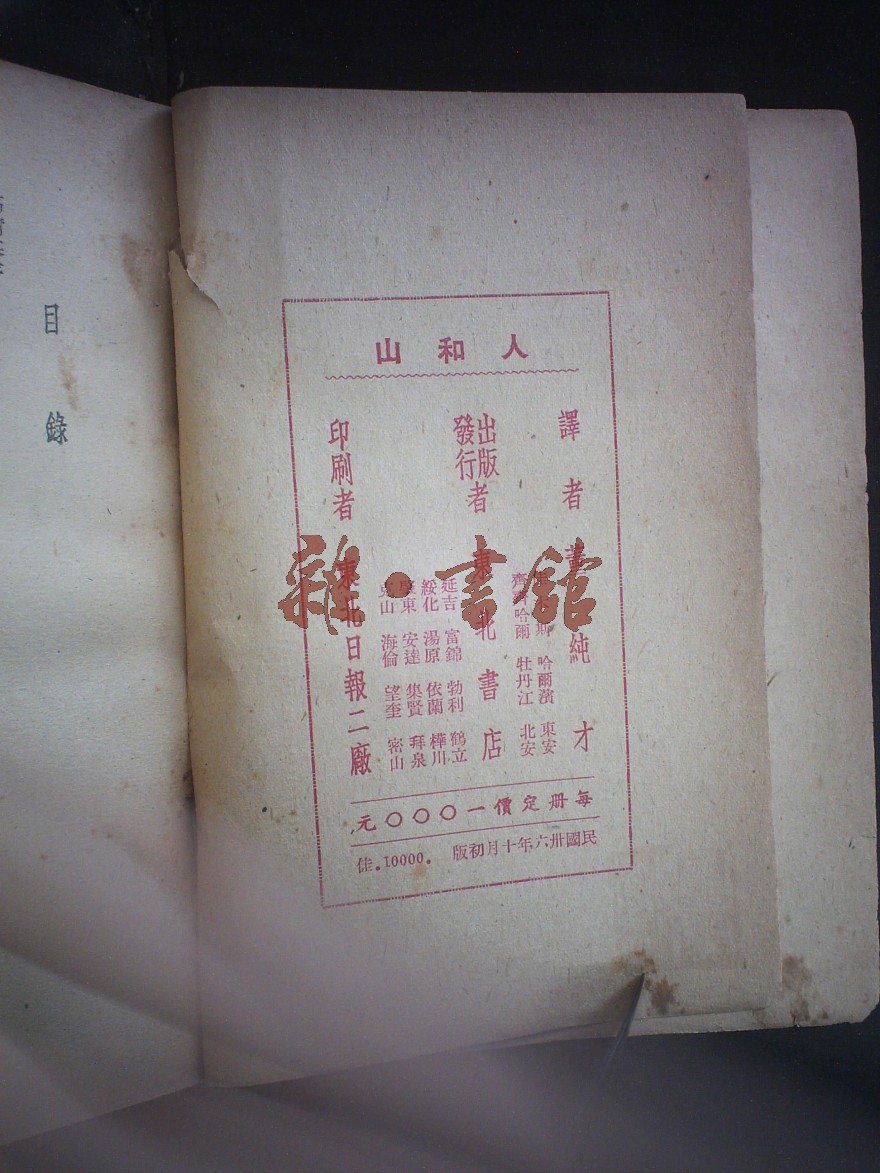 人和山
譯者 董純才
出版
發行者 東北書店
佳木斯 哈爾濱 東安
齊齊哈爾 牡丹江 北安
延吉 富錦 勃利 鶴立
綏化 湯原 依蘭 樺川
肇東 安達 集賢 拜泉
克山 海倫 望奎 密山
印刷者 東北日報二廠
每册定價一〇〇〇元
民國卅六年十月初版 .10000.佳
目錄
雜·書館